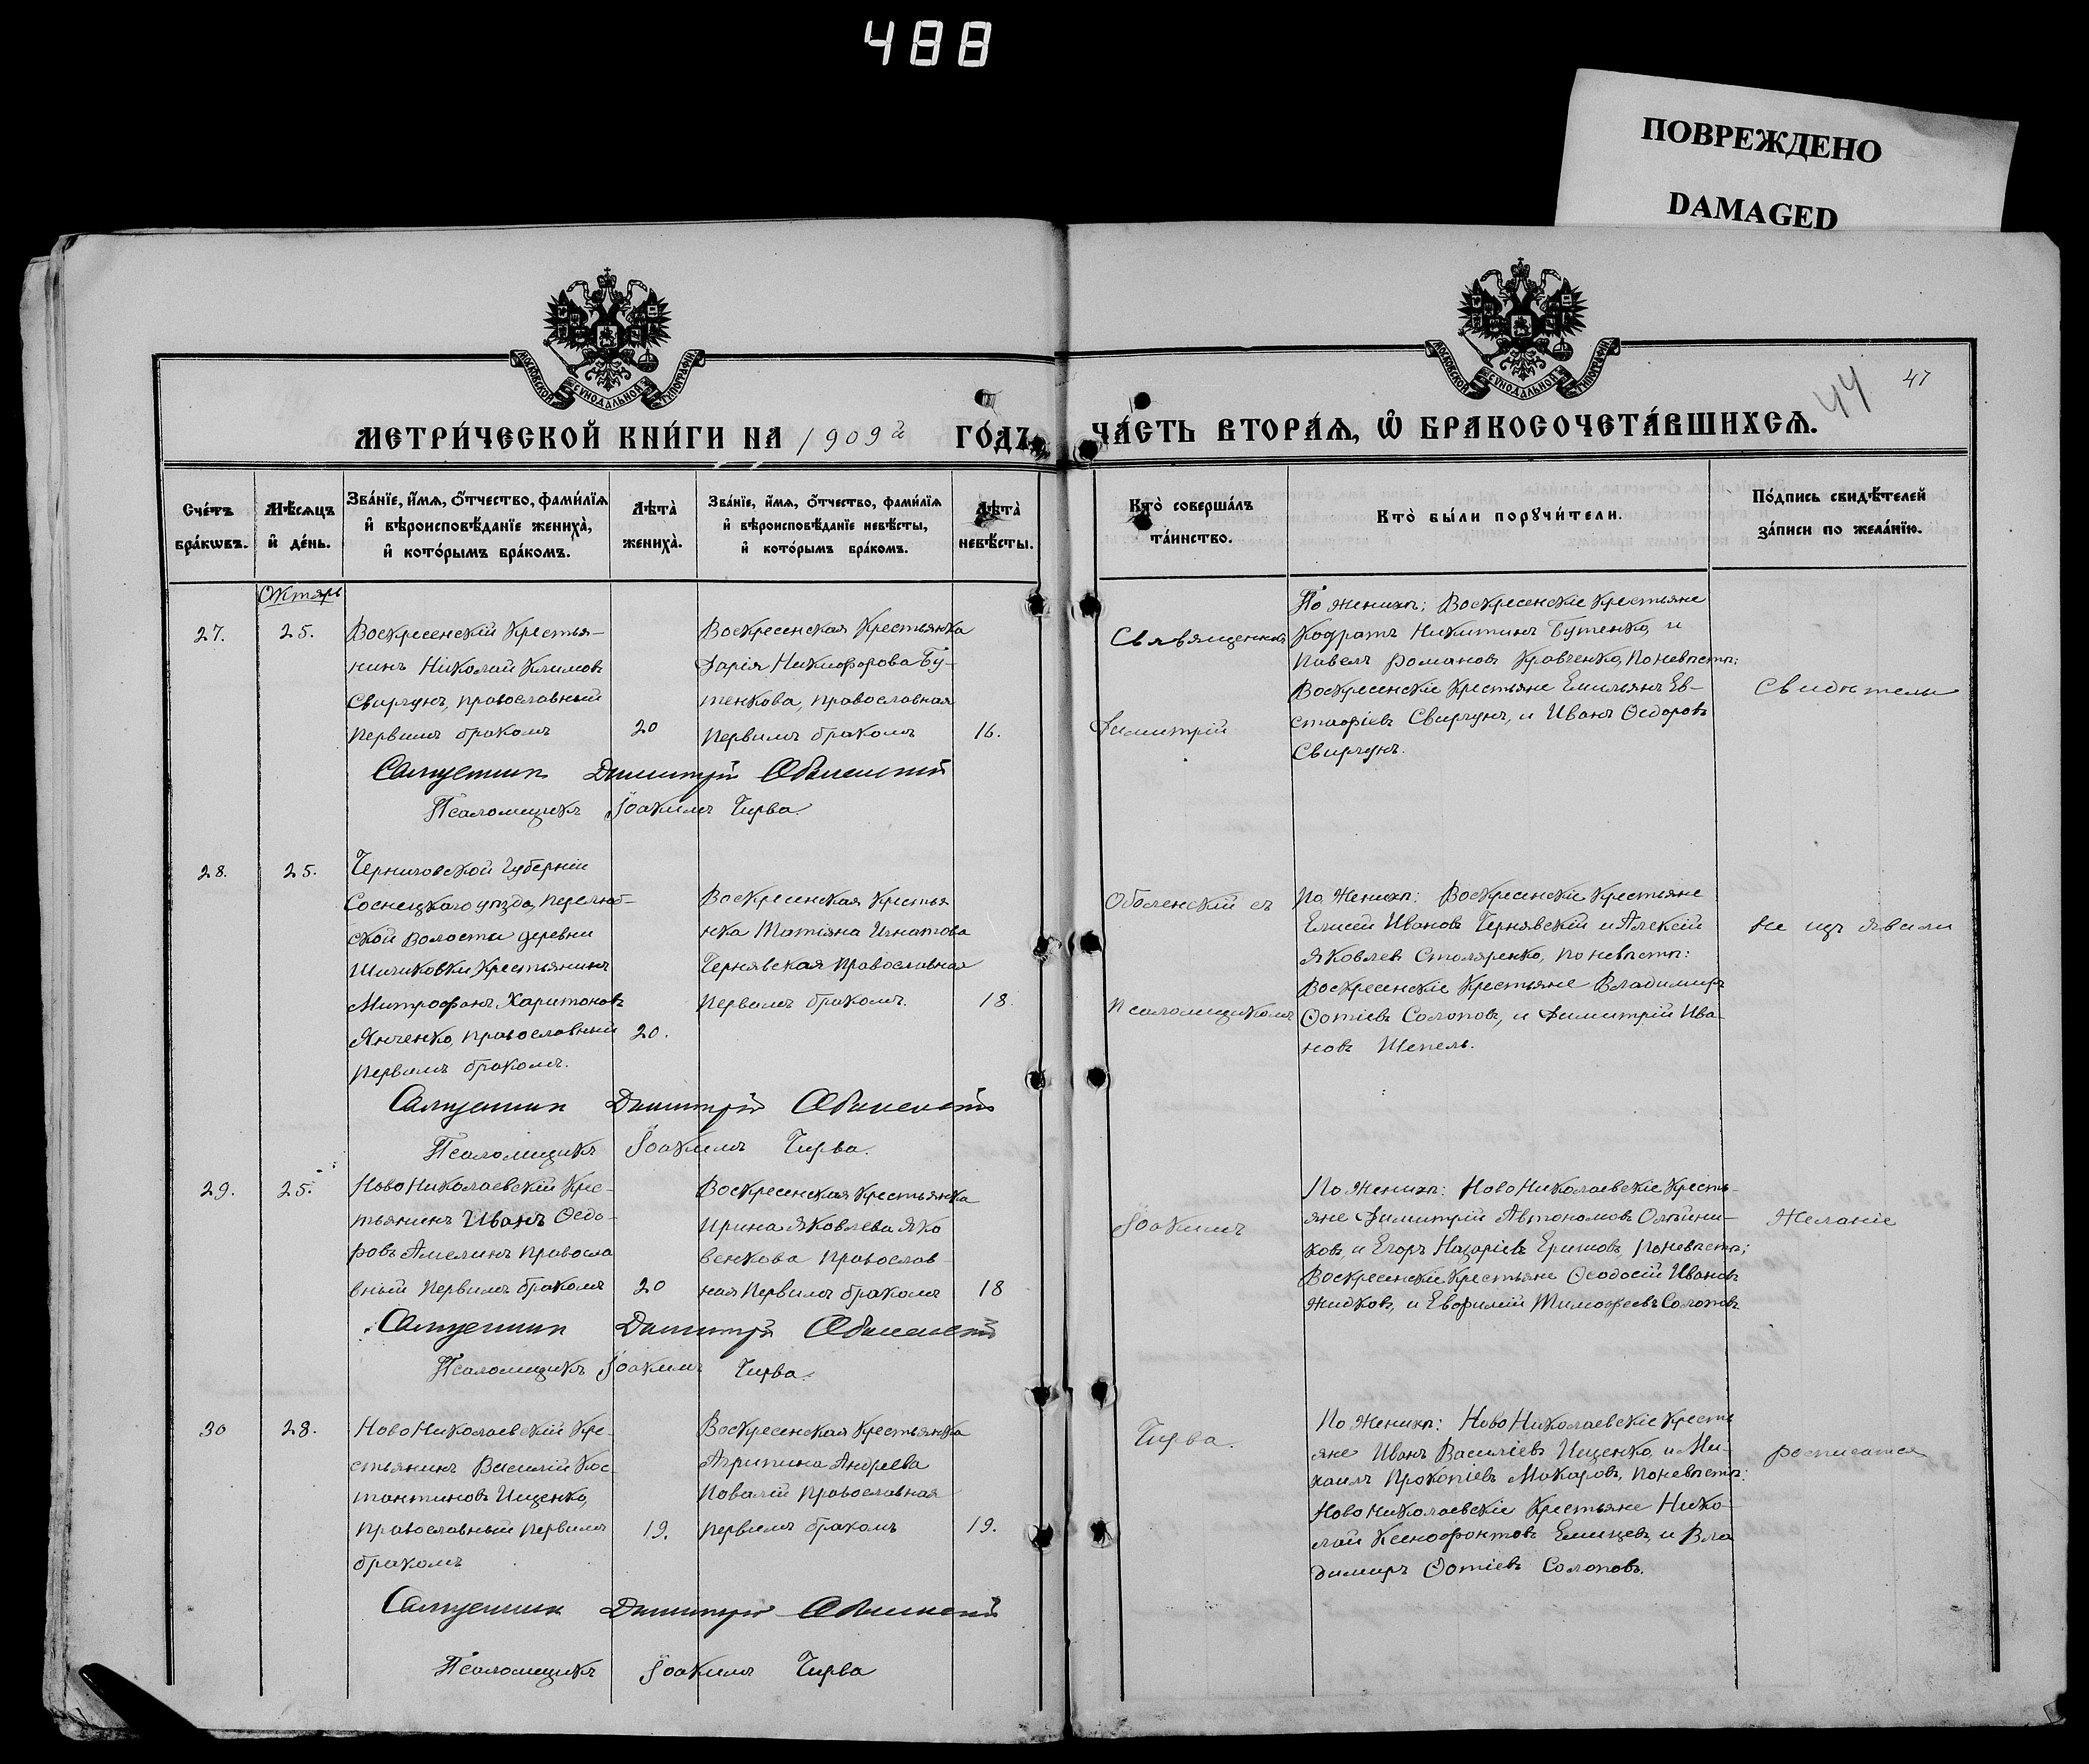 488
ПОВРЕЖДЕНО
DAMAGED
МОСКОВСКОЙ СѴНОДАЛЬНОЙ ТИПОГРАФІИ
МОСКОВСКОЙ СѴНОДАЛЬНОЙ ТИПОГРАФІИ
44
47
МЕТРИ́ЧЕСКОЙ КНИ́ГИ НА 1909й ГО́ДЪ,
ЧА́СТЬ ВТОРА́Ѧ, Ѽ БРАКОСОЧЕТА́ВШИХСѦ.
Сче́тъ
бра́кωвъ.
Мѣ́сѧцъ
и҆ де́нь.
Зва́нїе, и҆́мѧ, ѻ҆́тчество, фами́лїѧ
и҆ вѣроисповѣ́данїе жениха̀,
и҆ кото́рымъ бра́комъ.
Лѣта̀
жениха̀.
Зва́нїе, и҆́мѧ, ѻ҆́тчество, фами́лїѧ
и҆ вѣроисповѣ́данїе невѣ́сты,
и҆ кото́рымъ бра́комъ.
Лѣта̀
невѣ́сты.
Кто̀ соверша́лъ
та́инство.
Кто̀ бы́ли порꙋчи́тели.
По́дпись свидѣ́телей
за́писи по жела́нїю.
Октярь
27.
25.
Воскресенскій Крестья-
нинъ Николай Климовъ
Свиргунъ, православный
первымъ бракомъ
20
Воскресенская Крестьянка
Дарія Никифорова Бу-
тенкова, православная
первымъ бракомъ
16.
Священникъ
Димитрій
По женихѣ: Воскресенскіе крестьяне
Кодратъ Никитинъ Бутенко, и
Павелъ Романовъ Кравченко, по невѣстѣ:
Воскресенскіе крестьяне Емильянъ Ев-
стафіевъ Свиргунъ, и Иванъ Ѳедоровъ
Свиргунъ.
Свидѣтели
Священникъ Димитрій Оболенскій
Псаломщикъ Іоакимъ Чирва.
28.
25.
Черниговской Губерніи
Соснецкаго уѣзда, Перелюб-
ской волости деревни
Шишковки Крестьянинъ
Митрофанъ Харитоновъ
Янченко, православный
первымъ бракомъ.
20.
Воскресенская Крестья
нка Матіяна Игнатова
Чернявская православная
первымъ бракомъ.
18.
Оболенскій съ
псаломщикомъ
По женихѣ: Воскресенскіе Крестьяне
Елисей Ивановъ Чернявскій и Алексій
Яковлевъ Столяренко, по невѣстѣ:
Воскресенскіе Крестьяне Владимиръ
Ѳотіевъ Солоповъ, и Димитрій Ива-
новъ Шепель.
не изъявили
Священникъ Димитрій Оболенскій
Псаломщикъ Іоакимъ Чирва.
29.
25.
Ново Николаевскій Крес-
тьянинъ Иванъ Ѳедо-
ровъ Амелинъ правосла
вный первымъ бракомъ
20
Воскресенская Крестьянка
Ирина Яковлева Яко
венкова православ
ная первымъ бракомъ
18
Іоакимъ
По женихѣ: Ново Николаевскіе Кресть-
яне Димитрій Автономовъ Олѣйни-
ковъ, и Егоръ Назаріевъ Ериловъ, по невѣстѣ;
Воскресенскіе Крестьяне Ѳеодосій Ивановъ
Жидковъ, и Евфимій Тимофеевъ Солоповъ
желаніе
Священникъ Димитрій Оболенскій
Псаломщикъ Іоакимъ Чирва.
30
28.
Ново Николаевскій Кре-
стьянинъ Василій Кос-
тантиновъ Ищенко,
православный первымъ
бракомъ
19.
Воскресенская Крестьянка
Агрипина Андреева
Повалій православная
первымъ бракомъ
19.
Чирва.
По женихѣ: Ново Николаевскіе Кресть
яне Иванъ Василіевъ Ищенко, и Ми-
хаилъ Прокопіевъ Макаровъ, по невѣстѣ:
Ново Николаевскіе Крестьяне Нико-
лай Ксенофонтовъ Емицевъ, и Вла
димиръ Ѳотіевъ Солоповъ.
росписатся
Священникъ Димитрій Оболенскій
Псаломщикъ Іоакимъ Чирва